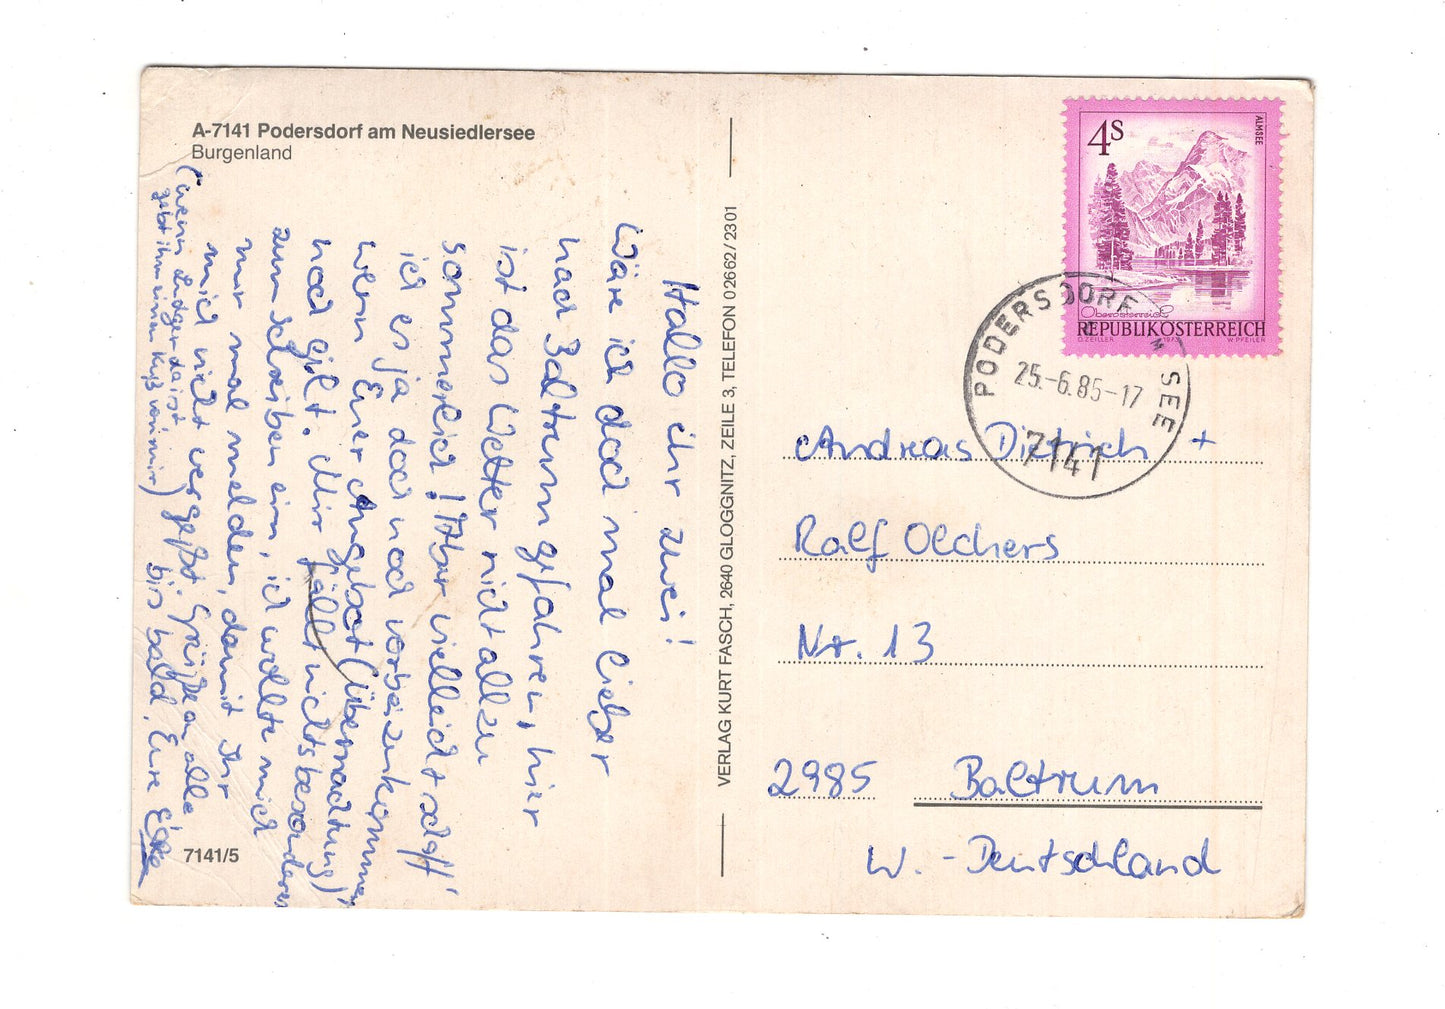 A-7141 Podersdorf am Neusiedlersee
Burgenland
Hallo ihr zwei!
Wäre ich doch mal lieber
nach Baltrum gefahren, hier
ist das Wetter nicht allzu
sommerlich! Aber vielleicht schaff'
ich es ja doch noch vorbeizukommen,
wenn Euer Angebot (Übernachtung)
noch gilt. Mir fällt nichts besonderes
zum schreiben ein, ich wollte mich
nur mal melden, damit ihr
mich nicht vergeßt. Grüße an alle
(wenn Ludger da ist
gebt ihm einen Kuß von mir)
bis bald, Eure Elke
7141/5
VERLAG KURT FASCH, 2640 GLOGGNITZ, ZEILE 3, TELEFON 02662/2301
4S
ALMSEE
Oberösterreich
REPUBLIK ÖSTERREICH
O.ZEILLER 1973 W.PFEILER
PODERSDORF AM SEE
25.-6.85-17
7141
Andreas Dietrich +
Ralf Olchers
Nr. 13
2985 Baltrum
W.-Deutschland